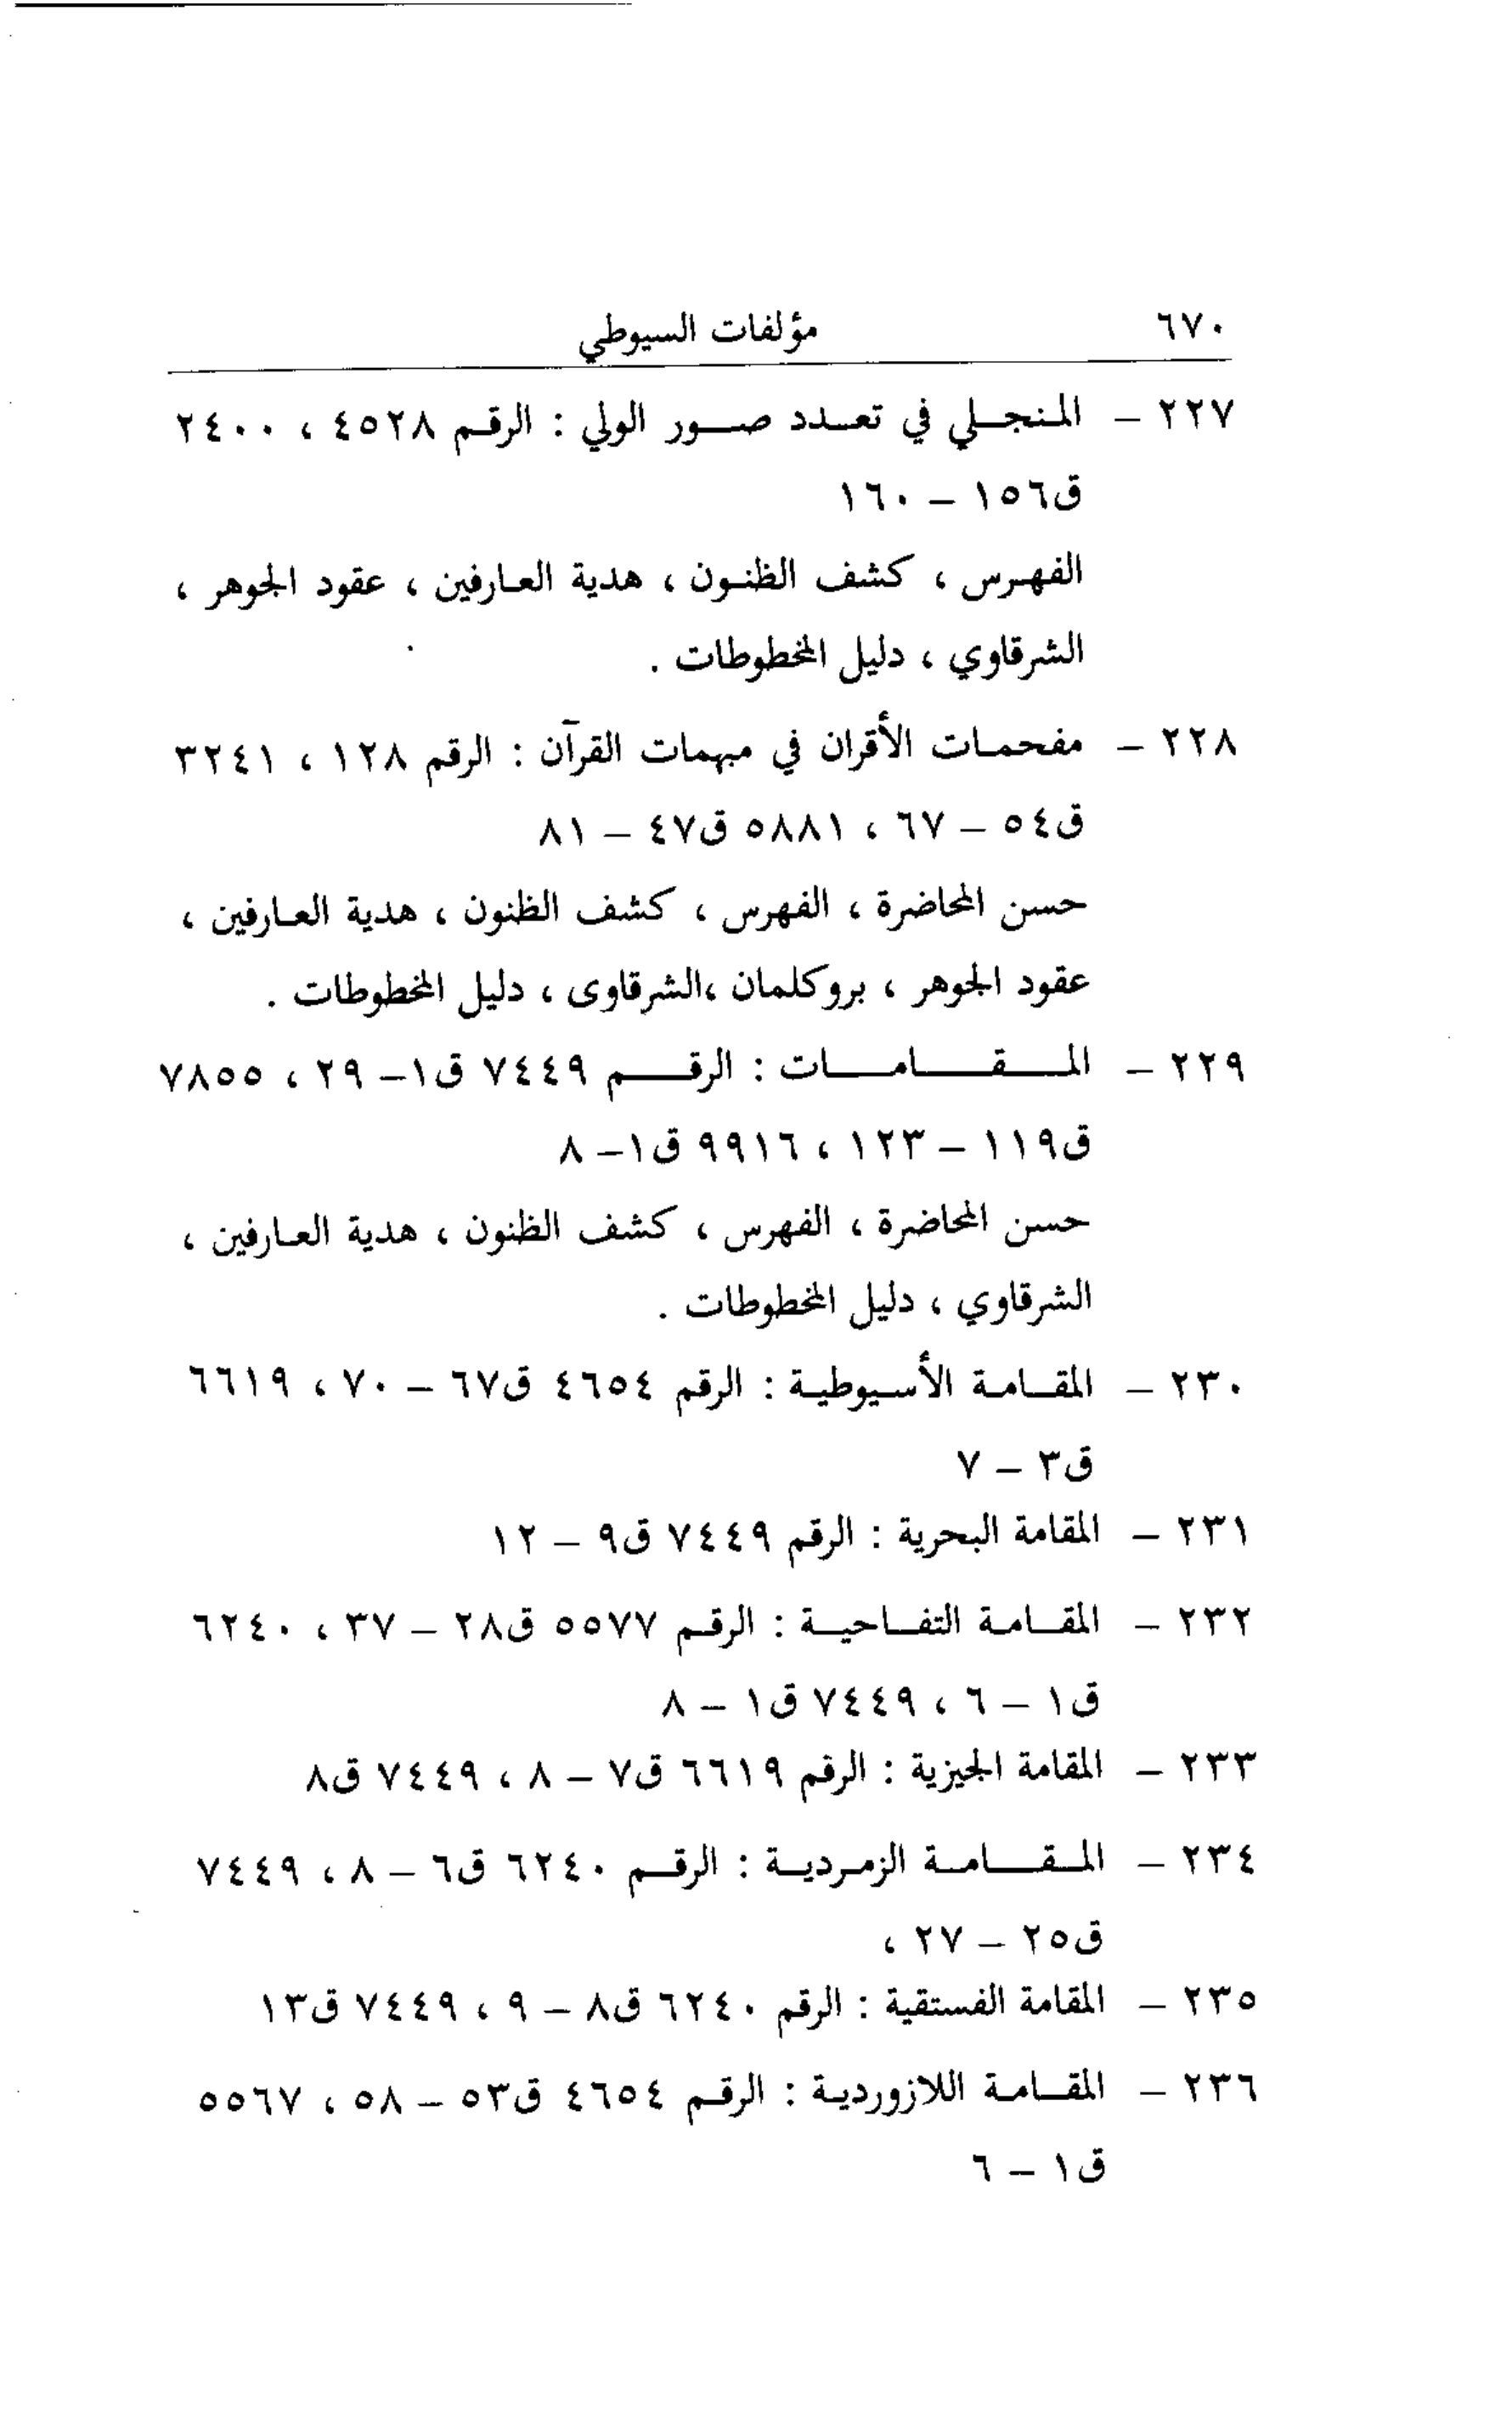 ٦٧٠ مؤلفات السيوطي
٢٢٧ – المنجلي في تعدد صور الولي : الرقم ٤٥٢٨ ، ٢٤٠٠
ق١٥٦ – ١٦٠
الفهرس ، كشف الظنون ، هدية العارفين ، عقود الجوهر ،
الشرقاوي ، دليل المخطوطات .
٢٢٨ – مفحمات الأقران في مبهمات القرآن : الرقم ١٢٨ ، ٣٢٤١
ق٥٤ – ٦٧ ، ٥٨٨١ ق٤٧ – ٨١
حسن المحاضرة ، الفهرس ، كشف الظنون ، هدية العارفين ،
عقود الجوهر ، بروكلمان ،الشرقاوى ، دليل المخطوطات .
٢٢٩ – المقامات : الرقم ٧٤٤٩ ق١– ٢٩ ، ٧٨٥٥
ق١١٩ – ١٢٣ ، ٩٩١٦ ق١– ٨
حسن المحاضرة ، الفهرس ، كشف الظنون ، هدية العارفين ،
الشرقاوي ، دليل المخطوطات .
٢٣٠ – المقامة الأسيوطية : الرقم ٤٦٥٤ ق٦٧ – ٧٠ ، ٦٦١٩
ق٣ – ٧
٢٣١ – المقامة البحرية : الرقم ٧٤٤٩ ق٩ – ١٢
٢٣٢ – المقامة التفاحية : الرقم ٥٥٧٧ ق٢٨ – ٣٧ ، ٦٢٤٠
ق١ – ٦ ، ٧٤٤٩ ق١ – ٨
٢٣٣ – المقامة الجيزية : الرقم ٦٦١٩ ق٧ – ٨ ، ٧٤٤٩ ق٨
٢٣٤ – المقامة الزمردية : الرقم ٦٢٤٠ ق٦ – ٨ ، ٧٤٤٩
ق٢٥ – ٢٧ ،
٢٣٥ – المقامة الفستقية : الرقم ٦٢٤٠ ق٨ – ٩ ، ٧٤٤٩ ق١٣
٢٣٦ – المقامة اللازوردية : الرقم ٤٦٥٤ ق٥٣ – ٥٨ ، ٥٥٦٧
ق١ – ٦